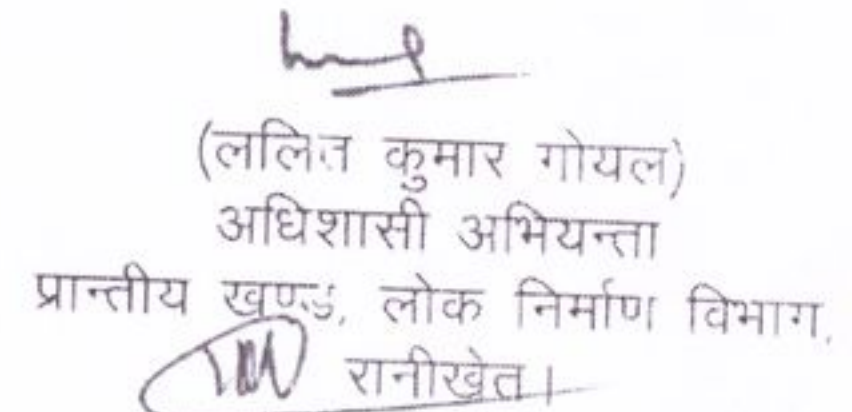 (ललित कुमार गोयल)
अधिशासी अभियन्ता
प्रान्तीय खण्ड, लोक निर्माण विभाग,
रानीखेत।